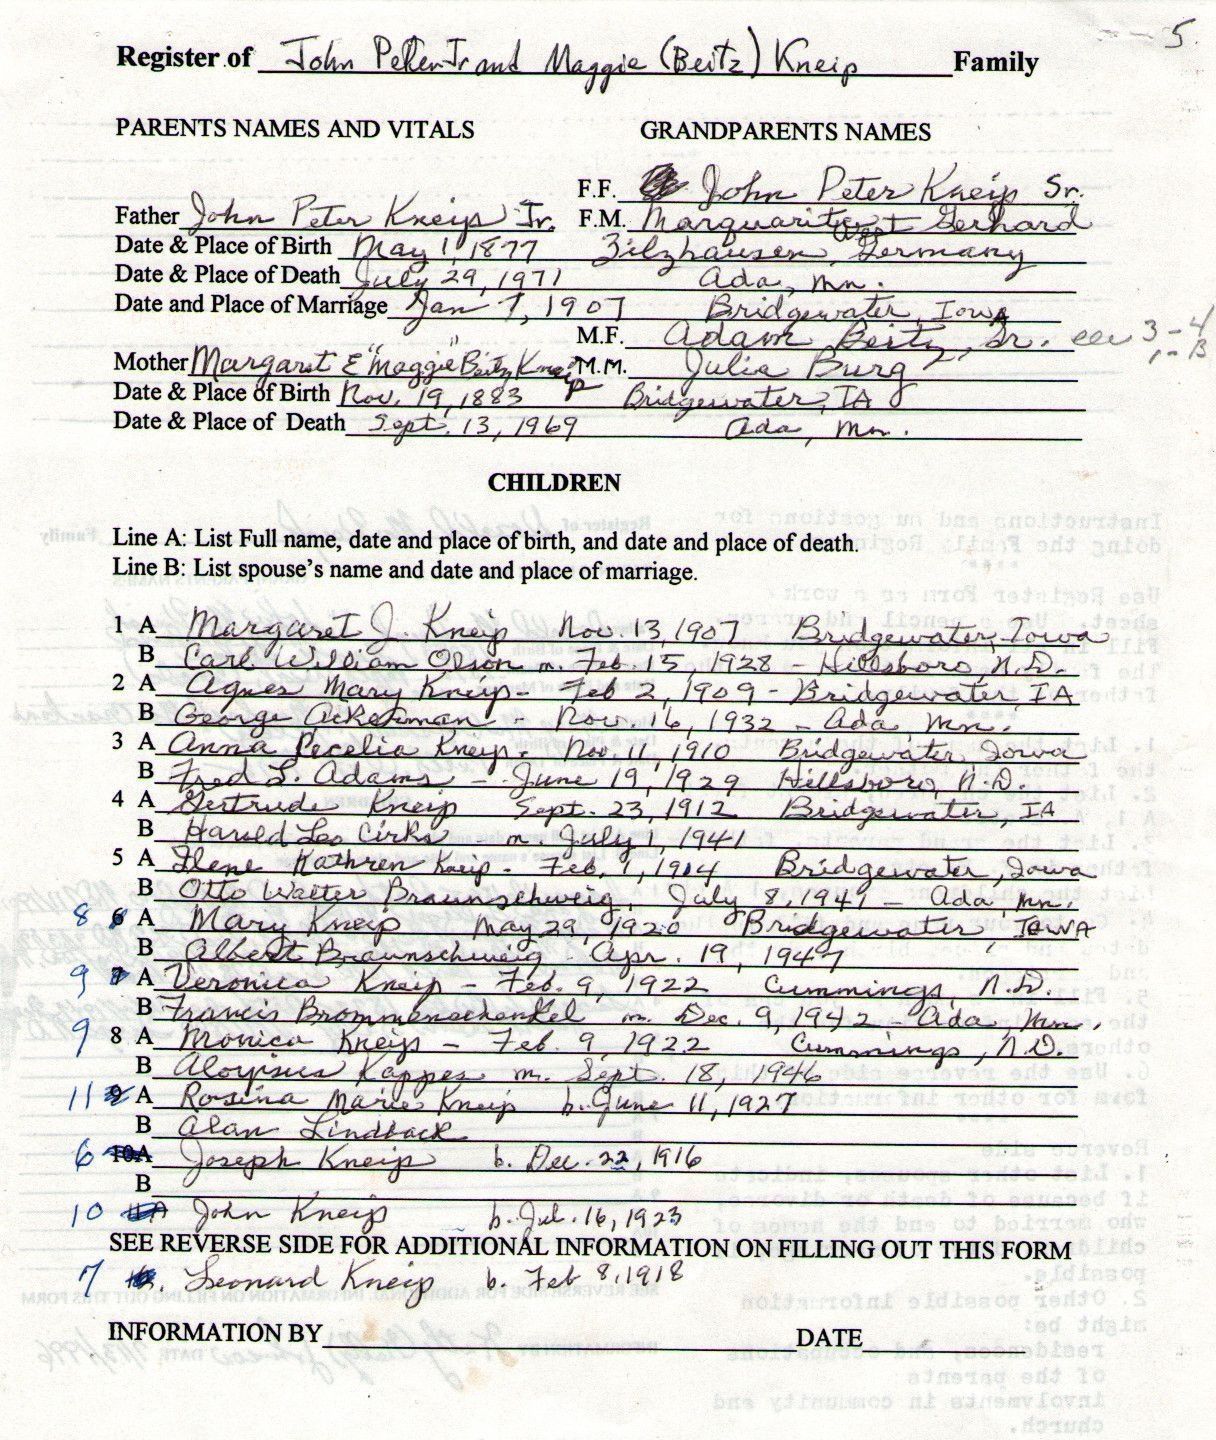 5.
Register of John Peter Jr and Maggie (Beitz) Kneip Family
PARENTS NAMES AND VITALS GRANDPARENTS NAMES
F.F. John Peter Kneip Sr.
Father John Peter Kneip Jr. F.M. Marquarita Gerhard
Date & Place of Birth May 1, 1877 Zilzhausen, West Germany
Date & Place of Death July 29, 1971 Ada, Mn.
Date and Place of Marriage Jan 7, 1907 Bridgewater, Iowa
M.F. Adam Beitz, Sr. 3-4
Mother Margaret E "Maggie" Beitz Kneip M.M. Julia Burg 1-B
Date & Place of Birth Nov. 19, 1883 Bridgewater, IA
Date & Place of Death Sept. 13, 1969 Ada, Mn.
CHILDREN
Line A: List Full name, date and place of birth, and date and place of death.
Line B: List spouse's name and date and place of marriage.
1 A Margaret J. Kneip Nov. 13, 1907 Bridgewater, Iowa
B Carl William Olson m. Feb. 15, 1928 - Hillsboro, N.D.
2 A Agnes Mary Kneip - Feb 2, 1909 - Bridgewater, IA
B George Ackerman - Nov. 16, 1932 - Ada, Mn.
3 A Anna Cecelia Kneip. Nov. 11, 1910 Bridgewater, Iowa
B Fred L. Adams - June 19, 1929 Hillsboro, N.D.
4 A Gertrude Kneip Sept. 23, 1912 Bridgewater, IA
B Harold Leo Cirks m. July 1, 1941
5 A Ilene Kathren Kneip - Feb. 1, 1914 Bridgewater, Iowa
B Otto Walter Braunschweig, July 8, 1941 - Ada, Mn.
8 6 A Mary Kneip May 29, 1920 Bridgewater, IOWA
B Albert Braunschweig Apr. 19, 1947
9 7 A Veronica Kneip - Feb. 9, 1922 Cummings, N.D.
B Francis Brommenschenkel m. Dec. 9, 1942 - Ada, Mn.
9 8 A Monica Kneip - Feb. 9, 1922 Cummings, N.D.
B Aloysius Kappes m. Sept. 18, 1946
11 9 A Rosina Marie Kneip b. June 11, 1927
B Alan Lindback
6 10A Joseph Kneip b. Dec. 22, 1916
B
10 11A John Kneip b. Jul. 16, 1923
SEE REVERSE SIDE FOR ADDITIONAL INFORMATION ON FILLING OUT THIS FORM
7 Leonard Kneip b. Feb 8, 1918
INFORMATION BY DATE